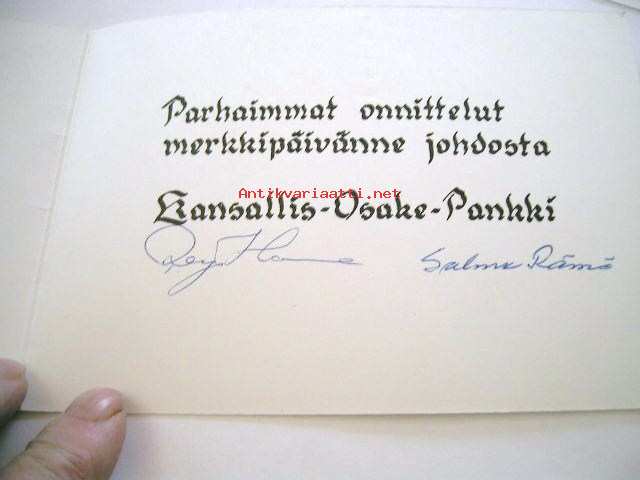 Parhaimmat onnittelut
merkkipäivänne johdosta
Antikvariaatti.net
Kansallis-Osake-Pankki
Salme Rämö